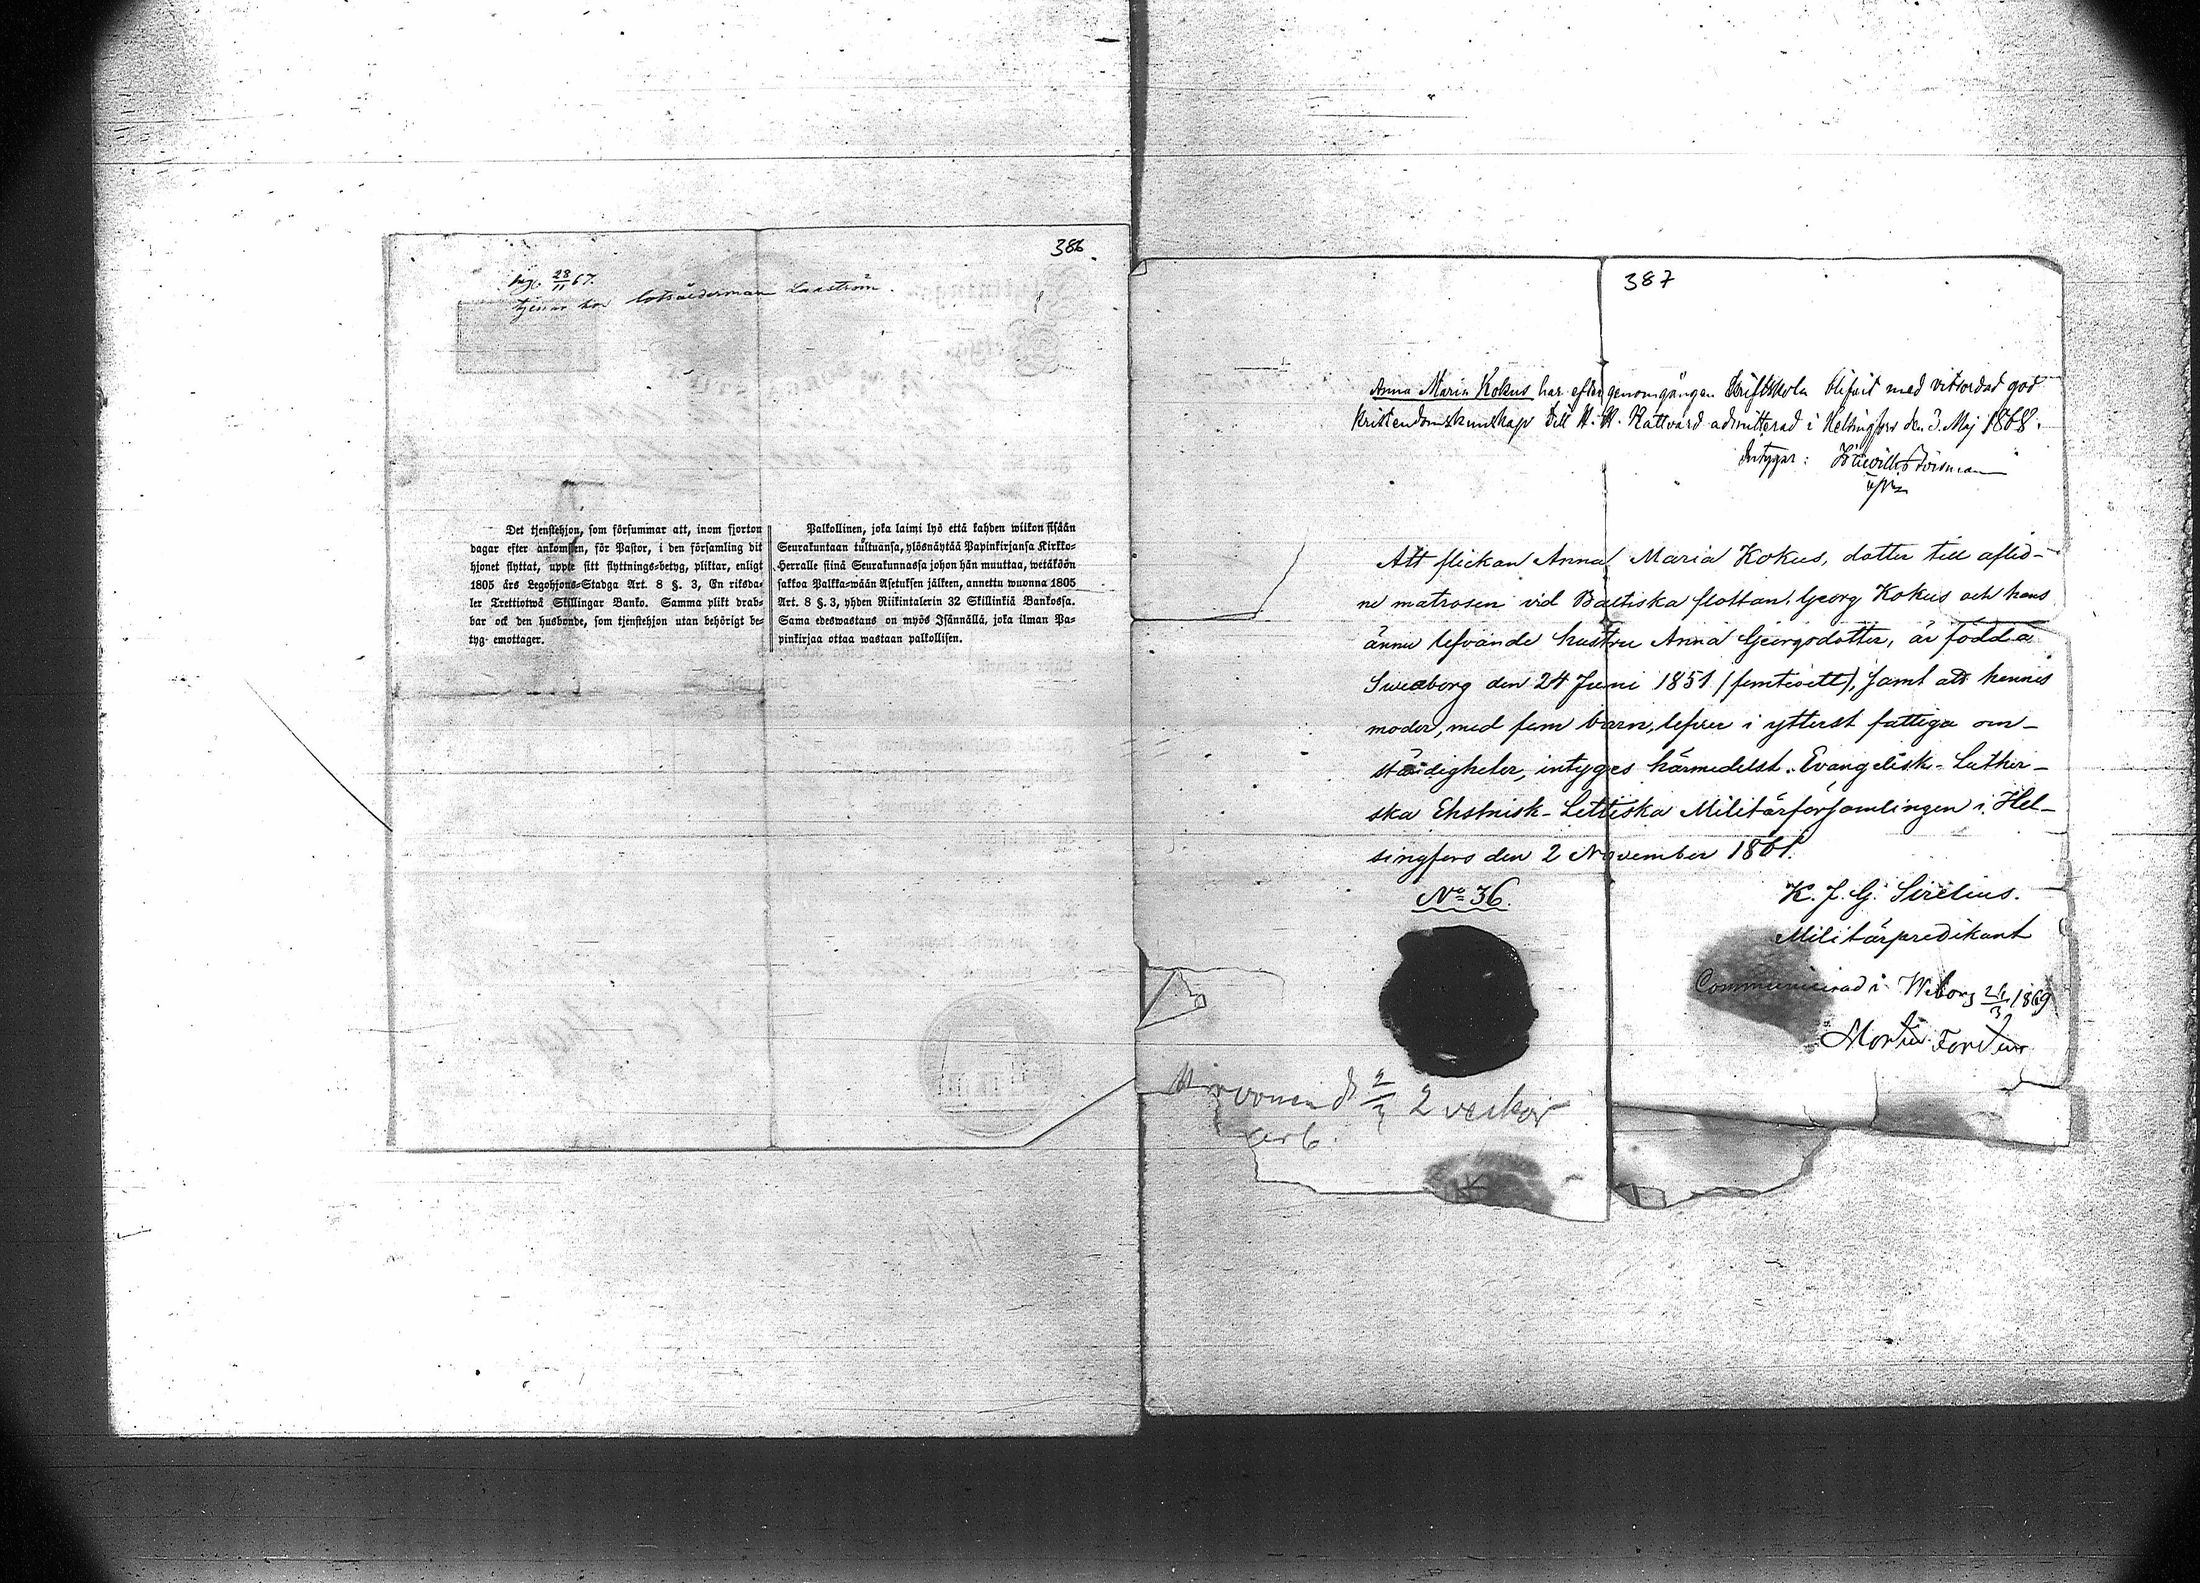 386
ing. 28/11 67.
tjenar hos lotsålderman Lanström.
Det tjenstehjon, som försummar att, inom fjorton
dagar efter ankomsten, för Pastor, i den församling dit
hjonet flyttat, uppte sitt flyttnings-betyg, pliktar, enligt
1805 års Legohjons-Stadga Art. 8 §. 3, En riksda-
ler Trettiotwå Skillingar Banko. Samma plikt drab-
bar ock den husbonde, som tjenstehjon utan behörigt be-
tyg emottager.
Palkollinen, joka laimi lyö että kahden wiikon sisään
Seurakuntaan tultuansa, ylösnäytää Papinkirjansa Kirkko-
Herralle siinä Seurakunnassa johon hän muuttaa, wetäköön
sakkoa Palkka-wään Asetuksen jälkeen, annettu wuonna 1805
Art. 8 §. 3, yhden Riikintalerin 32 Skillinkiä Bankossa.
Sama edeswastaus on myös Isännällä, joka ilman Pa-
pinkirjaa ottaa wastaan palkollisen.
387
Anna Maria Kokus har efter genomgången Skriftskola blifvit med vitsordad god
Kristendomskunskap till H. H. Nattvard admitterad i Helsingfors den 3. Maj 1868.
Intygar:
Att flickan Anna Maria Kokus, dotter till aflid-
ne matrosen vid Baltiska flottan, Georg Kokus och hans
ännu lefvande hustru Anna Georgsdotter, är född å
Sweaborg den 24 Juni 1851 (femtioett), samt att hennes
moder, med fem barn, lefver i ytterst fattiga om-
ständigheter, intyges härmedelst. Evangelisk-Luther-
ska Ehstnisk-Lettiska Militärförsamlingen i Hel-
singfors den 2 November 1861.
No 36.
K. J. G. Sirelius.
Militärpredikant
Communicerad i Wiborg 21/3 1869
Martin
2 veckor